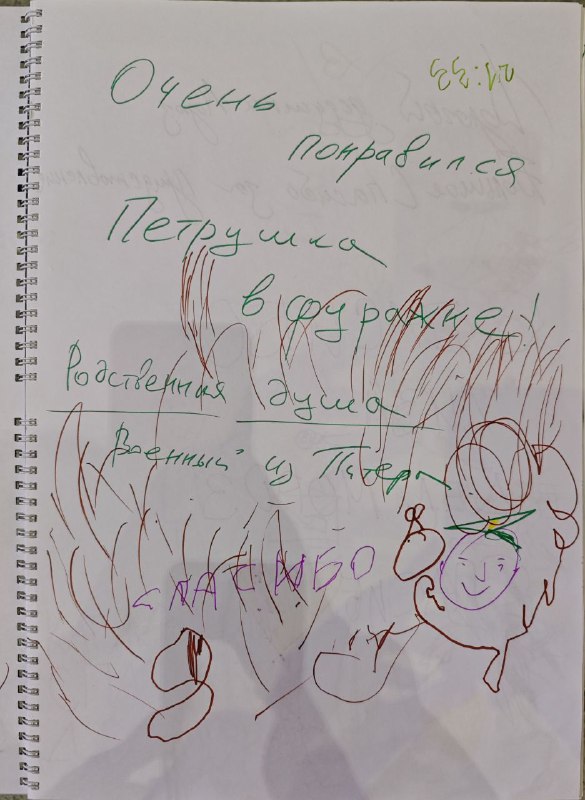 21:33
Очень
понравился
Петрушка
в фуражке!
Родственная душа
Военный из Питера
СПАСИБО